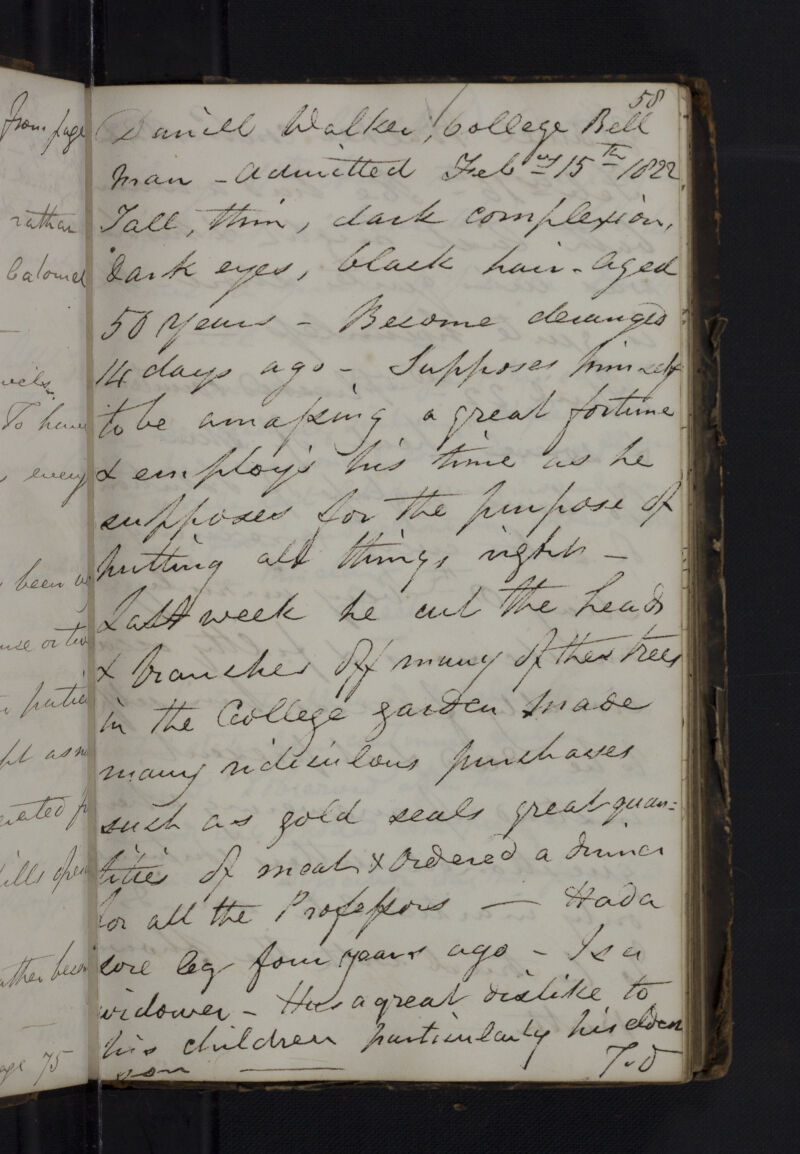 from page
rather
Calomel
To have
every
been
page 75
58
Daniell Walker, College Bell
man - Admitted Feb^ry 15^th 1822
Tall, thin, dark complexion,
dark eyes, black hair - Aged
50 years - Become deranged
14 days ago - Supposes himself
to be amaſsing a great fortune
& employs his time as he
supposes for the purpose of
putting all things right -
Last week he cut the heads
& branches off many of the trees
in the College garden made
many ridiculous purchases
such as gold seals great quan=
tities of meat & ordered a dinner
for all the Profeſsors — Had a
sore leg four years ago - Is a
widower - Has a great dislike to
his children particularly his elder
son —